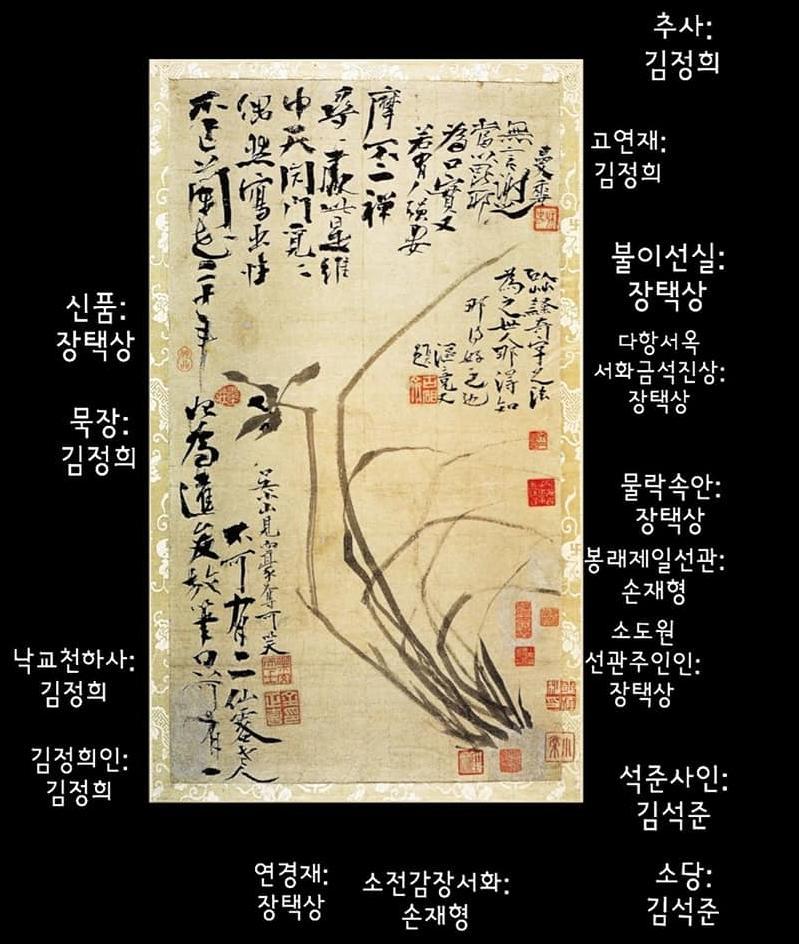 추사:
김정희
고연재:
김정희
불이선실:
장택상
다항서옥
서화금석진상:
장택상
물락속안:
장택상
봉래제일선관:
손재형
소도원
선관주인인:
장택상
석준사인:
김석준
소당:
김석준
신품:
장택상
묵장:
김정희
낙교천하사:
김정희
김정희인:
김정희
연경재:
장택상
소전감장서화:
손재형
不作蘭花二十年
偶然寫出性
中天閉門覓〻
尋〻處此是維
摩不二禪
若有人强要
爲口實又
當以毘耶
無言謝之
曼香
以草隸奇字之法
爲之世人那得知
那得好之也
漚竟又
題
始爲達俊放筆只可有一
不可有二仙客老人
吳小山見而豪奪可笑